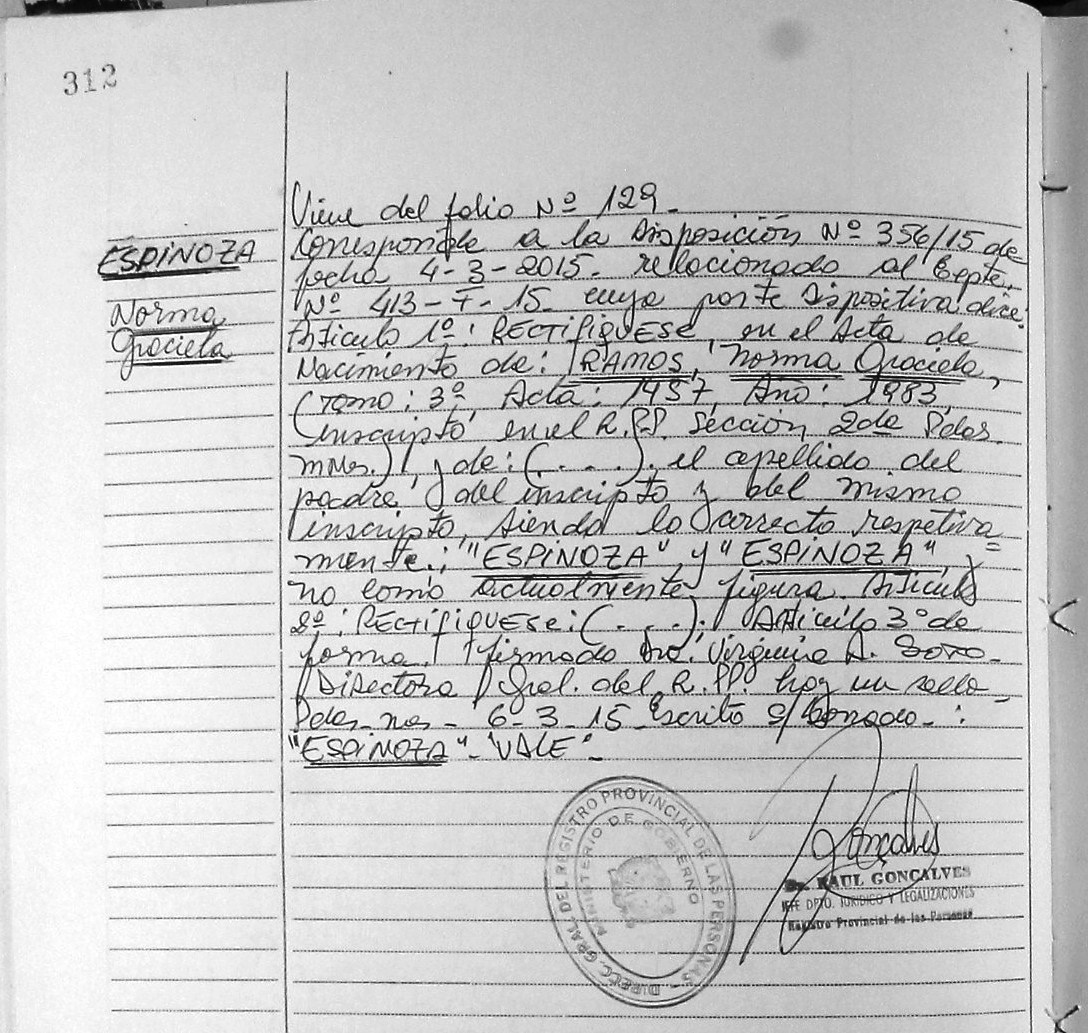 312
ESPINOZA
Norma
Graciela
Viene del folio Nº 129-
Corresponde a la Disposición Nº 356/15 de
fecha 4-3-2015- relacionado al Expte.
Nº 413-T-15. cuya parte Dispositiva dice:
Articulo 1º: RECTIFIQUESE, en el Acta de
Nacimiento de: RAMOS, Norma Graciela,
(Tomo: 3º, Acta: 1457, Año: 1983,
inscripto en el R.P.P. Sección 2da Pdas.
Mnes.), y de: (. . . .), el apellido del
padre, del inscripto y del mismo
inscripto, siendo lo correcto respetiva=
mente: "ESPINOZA" y "ESPINOZA", y
no como actualmente figura. Articulo
2º: RECTIFIQUESE: (. . . .); Articulo 3º de
forma. firmado Dra. Virginia A. Soto-
Directora Gral. del R.PP. hay un sello-
Pdas-Mnes- 6-3-15 Escrito s/ borrado- :
"ESPINOZA"- VALE"-
DIRECC. GRAL DEL REGISTRO PROVINCIAL DE LAS PERSONAS -
MINISTERIO DE GOBIERNO
Gonçalves
Dr. RAUL GONÇALVES
JEFE DPTO. JURIDICO Y LEGALIZACIONES
Registro Provincial de las Personas